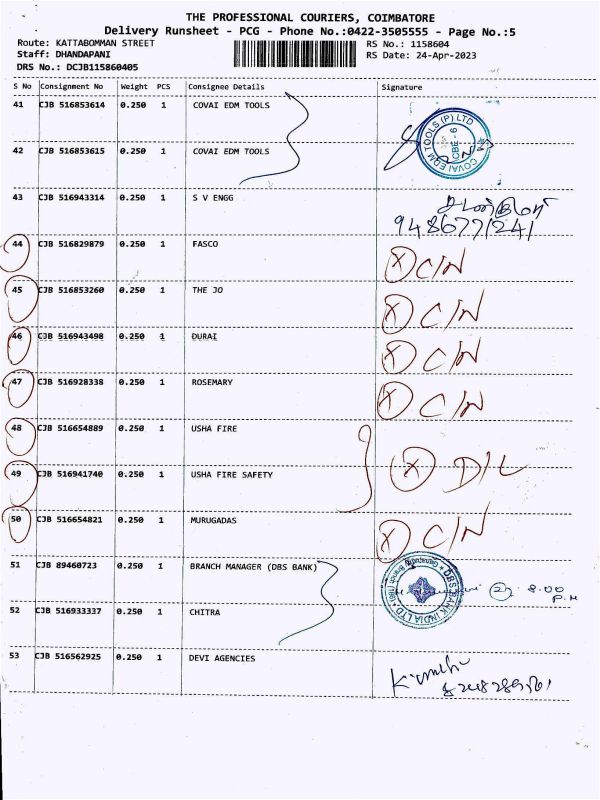 THE PROFESSIONAL COURIERS, COIMBATORE
Delivery Runsheet - PCG - Phone No.:0422-3505555 - Page No.:5
Route: KATTABOMMAN STREET RS No.: 1158604
Staff: DHANDAPANI RS Date: 24-Apr-2023
DRS No.: DCJB115860405
S No Consignment No Weight PCS Consignee Details Signature
41 CJB 516853614 0.250 1 COVAI EDM TOOLS
COVAI EDM TOOLS (P) LTD CBE - 6
42 CJB 516853615 0.250 1 COVAI EDM TOOLS
43 CJB 516943314 0.250 1 S V ENGG
9486771241
44 CJB 516829879 0.250 1 FASCO X C/N
45 CJB 516853260 0.250 1 THE JO X C/N
46 CJB 516943498 0.250 1 DURAI X C/N
47 CJB 516928338 0.250 1 ROSEMARY X C/N
48 CJB 516654889 0.250 1 USHA FIRE
49 CJB 516941740 0.250 1 USHA FIRE SAFETY X D/L
50 CJB 516654821 0.250 1 MURUGADAS X C/N
51 CJB 89460723 0.250 1 BRANCH MANAGER (DBS BANK)
DBS BANK INDIA LTD
8.00
P.M
52 CJB 516933337 0.250 1 CHITRA
53 CJB 516562925 0.250 1 DEVI AGENCIES